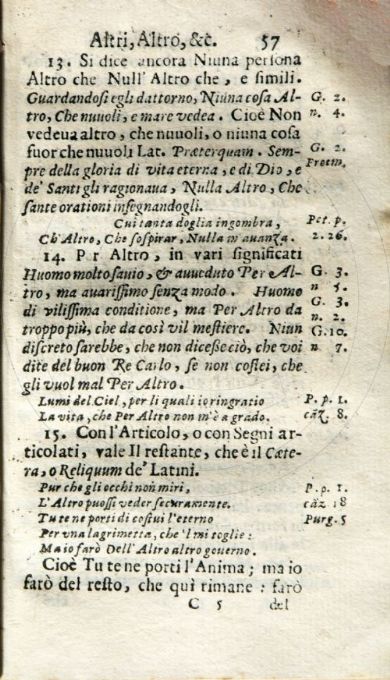 Altri, Altro, &c. 57
13. Si dice ancora Niuna persona
Altro che Null' Altro che, e simili.
Guardandosi egli dattorno, Niuna cosa Al- G. 2.
tro, Che nuuoli, e mare vedea. Cioè Non n. 4.
vedeua altro, che nuuoli, o niuna cosa
fuor che nuuoli Lat. Præterquam. Sem- G. 2.
pre della gloria di vita eterna, e di Dio, e Proem.
de' Santi gli ragionaua, Nulla Altro, Che
sante orationi insegnandogli.
Cui tanta doglia ingombra, Pet. p.
Ch'Altro, Che sospirar, Nulla m'auanza. 2. 26.
14. Pr Altro, in vari significati
Huomo molto sauio, & auueduto Per Al- G. 3.
tro, ma auarissimo senza modo. Huomo n 5.
di vilissima conditione, ma Per Altro da G. 3.
troppo più, che da così vil mestiere. Niun n. 2.
discreto sarebbe, che non dicesse ciò, che voi G. 10.
dite del buon Re Carlo, se non costei, che n 7.
gli vuol mal Per Altro.
Lumi del Ciel, per li quali io ringratio P. p. 1.
La vita, che Per Altro non m'è a grado. cāz. 8.
15. Con l'Articolo, o con Segni ar-
ticolati, vale Il restante, che è il Cæte-
ra, o Reliquum de' Latini.
Pur che gli occhi non miri, P. p. 1.
L'Altro puossi veder securamente. cāz. 18
Tu te ne porti di costui l'eterno Purg. 5
Per vna lagrimetta, che 'l mi toglie:
Ma io farò Dell'Altro altro gouerno.
Cioè Tu te ne porti l'Anima; ma io
farò del resto, che quì rimane: farò
C 5 del